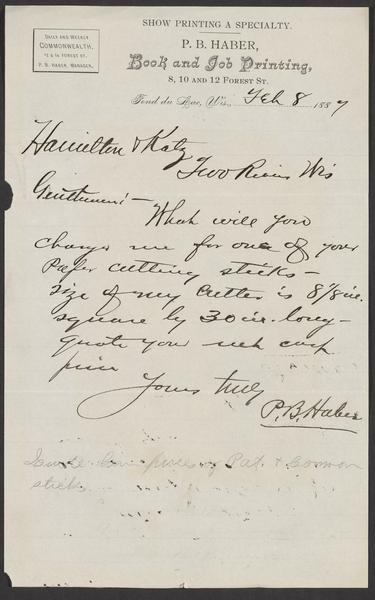 SHOW PRINTING A SPECIALTY.
DAILY AND WEEKLY
COMMONWEALTH,
P. B. HABER, MANAGER.
P. B. HABER,
Book and Job Printing,
8, 10 AND 12 FOREST ST.
Fond du Lac, Wis., Feb 8 1889
Hamilton & Katz
Two Rivers Wis
Gentlemen: —
What will you
charge me for one of your
paper cutting sticks —
Size of my cutter is
square by 30 in. long —
quote your net cash
price
Yours truly
P. B. Haber
prices of Pat. & Common
sticks